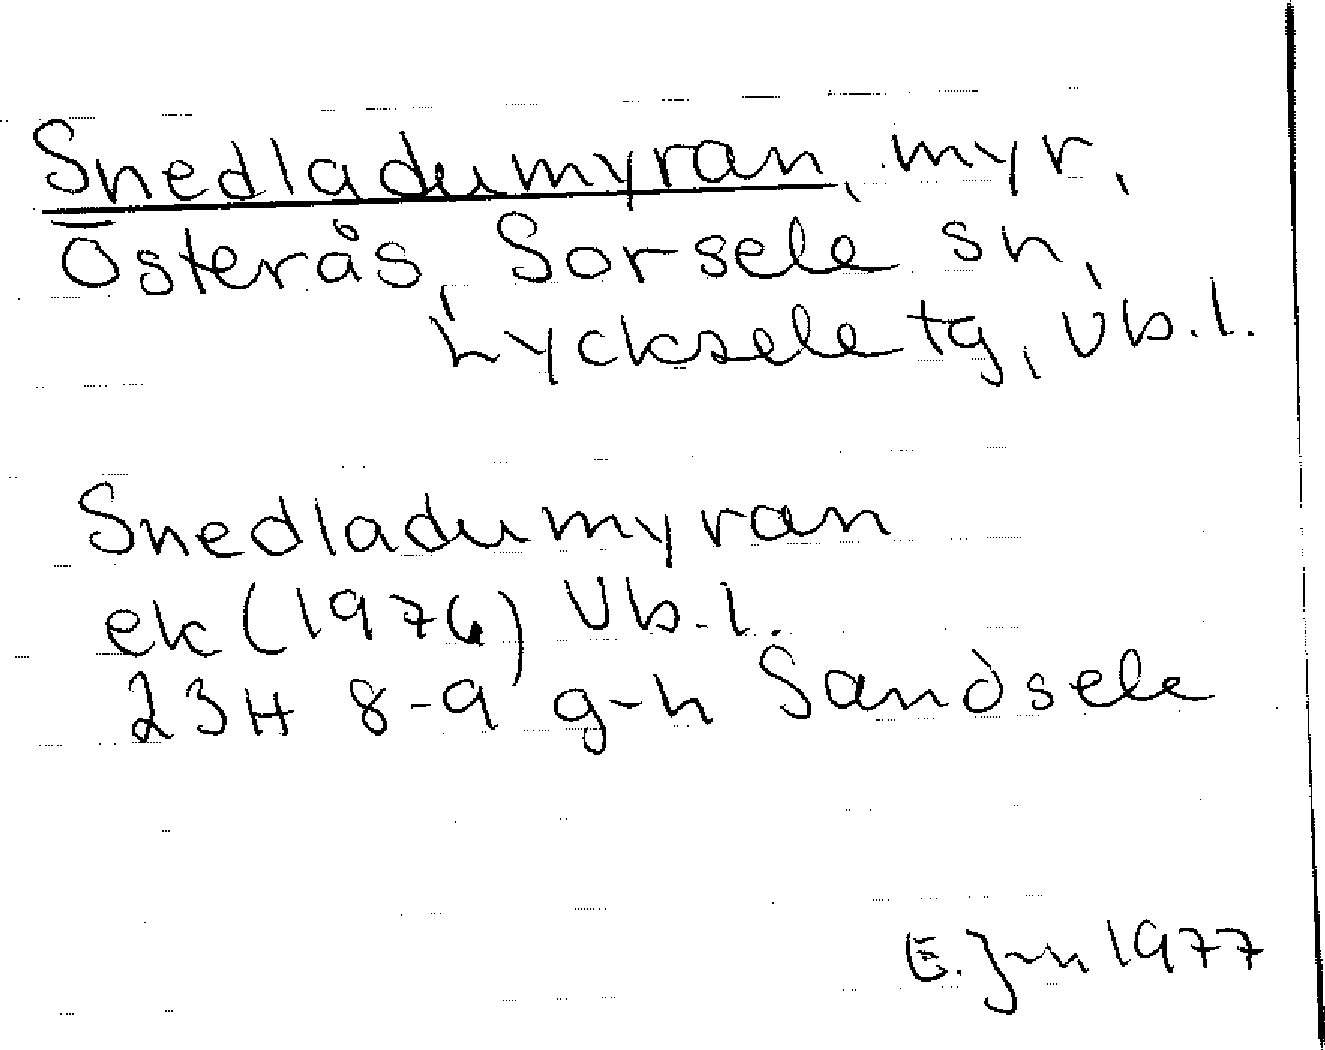 Snedladumyran, myr,
Österås, Sorsele sn,
Lycksele tg, Vb.l.
Snedladumyran
ek (1976) Vb.l.
23H 8-9 g-h Sandsele
E. 1977